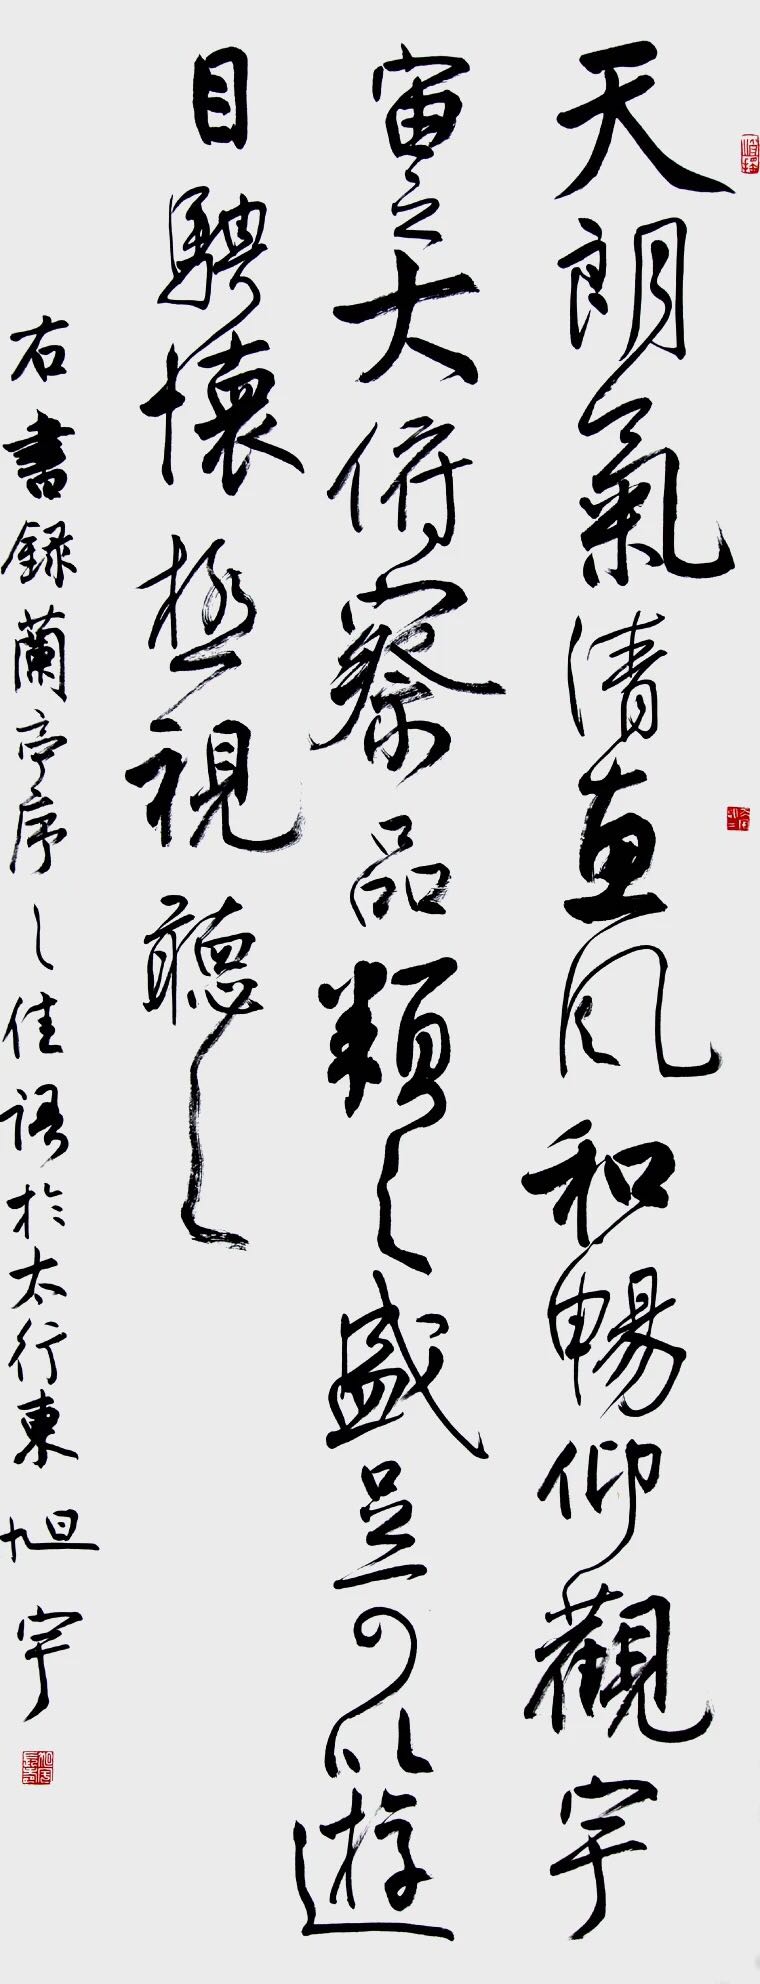 天朗氣清惠風和暢仰觀宇
宙之大俯察品類之盛足可以遊
目騁懷極視聽之
右書録蘭亭序之佳語於太行東旭宇